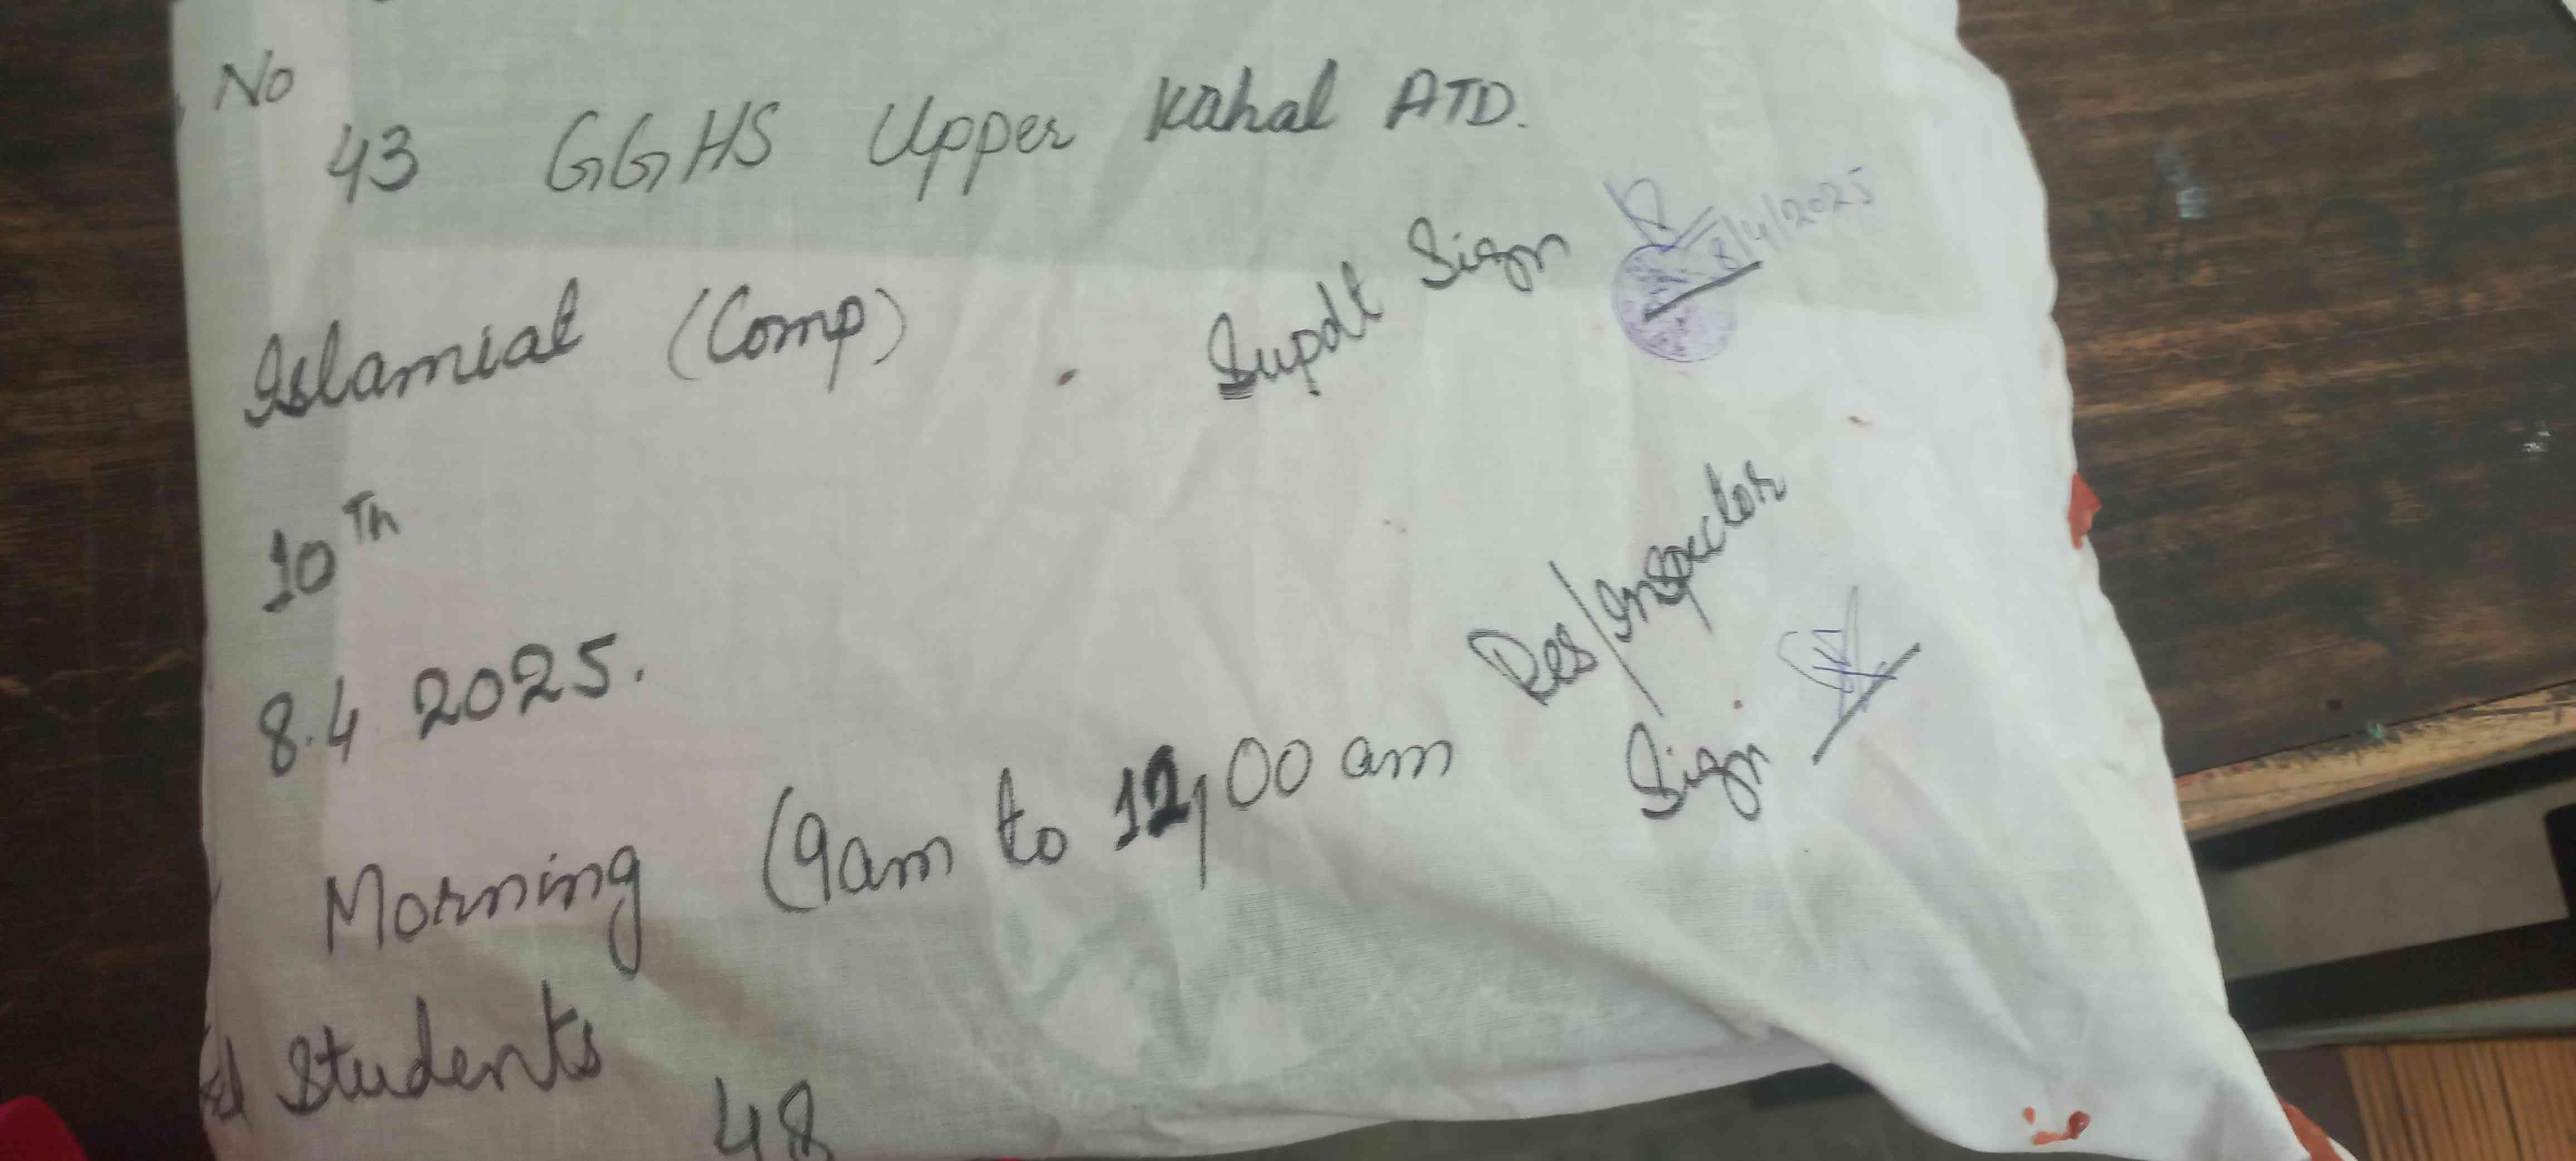 No
43 GGHS Upper Kahal ATD.
Islamiat (Comp)
Supdt Sign
8/4/2025
10Th
8.4 2025.
Res/Inspector
Sign
Morning (9am to 12,00 am
Students
48